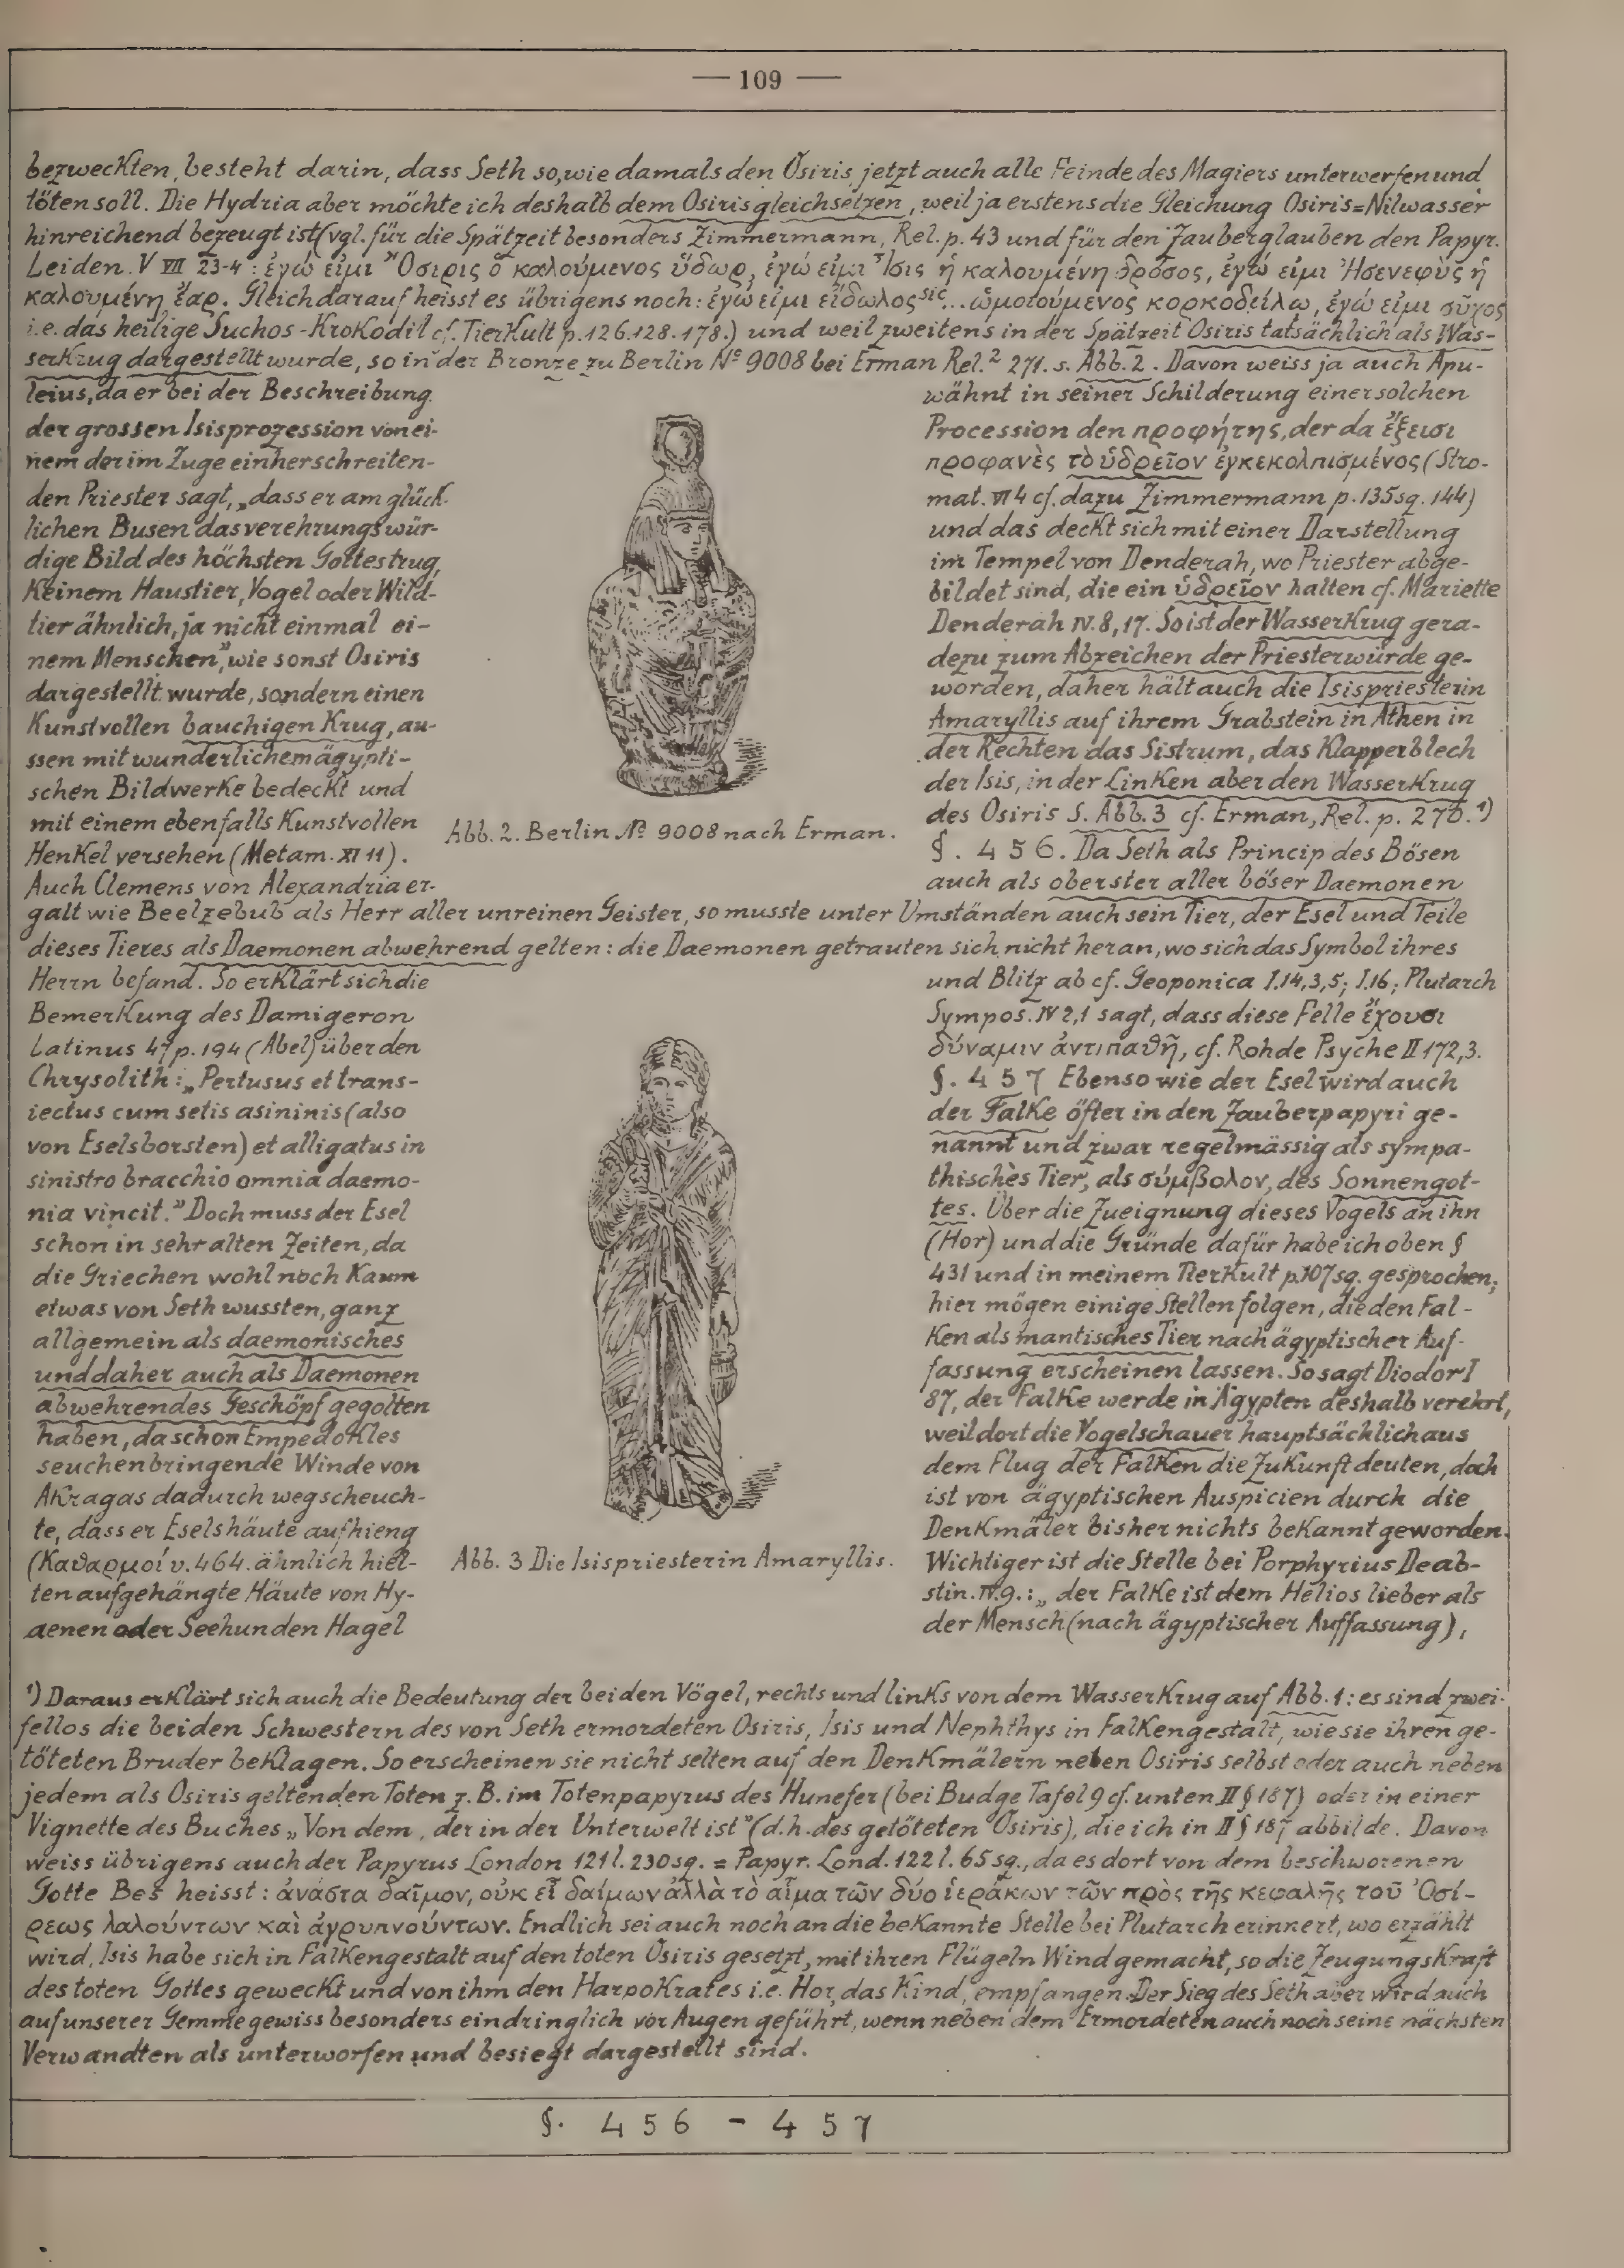 — 109 —
bezweckten, besteht darin, dass Seth so, wie damals den Osiris, jetzt auch alle Feinde des Magiers unterwerfen und
töten soll. Die Hydria aber möchte ich deshalb dem Osiris gleichsetzen, weil ja erstens die Gleichung Osiris=Nilwasser
hinreichend bezeugt ist (vgl. für die Spätzeit besonders Zimmermann, Rel. p. 43 und für den Zauberglauben den Papyr.
Leiden. V VII 23-4: ἐγώ εἰμι Ὄσιρις ὁ καλούμενος ὕδωρ, ἐγώ εἰμι Ἶσις ἡ καλουμένη δρόσος, ἐγώ εἰμι Ἠσενεφὺς ἡ
καλουμένη ἔαρ. Gleich darauf heisst es übrigens noch: ἐγώ εἰμι εἴδωλος sic... ὡμοιούμενος κορκοδείλω, ἐγώ εἰμι σῦχος
i.e. das heilige Suchos-Krokodil cf. Tierkult p. 126.128.178.) und weil zweitens in der Spätzeit Osiris tatsächlich als Was-
serkrug dargestellt wurde, so in der Bronze zu Berlin No 9008 bei Erman Rel.² 271. s. Abb. 2. Davon weiss ja auch Apu-
leius, da er bei der Beschreibung
der grossen Isisprozession von ei-
nem der im Zuge einherschreiten-
den Priester sagt, „dass er am glück-
lichen Busen das verehrungswür-
dige Bild des höchsten Gottes trug,
Keinem Haustier, Vogel oder Wild-
tier ähnlich, ja nicht einmal ei-
nem Menschen", wie sonst Osiris
dargestellt wurde, sondern einen
Kunstvollen bauchigen Krug, au-
ssen mit wunderlichem ägypti-
schen Bildwerke bedeckt und
mit einem ebenfalls Kunstvollen
Henkel versehen (Metam. XI 11).
Auch Clemens von Alexandria er-
Abb. 2. Berlin No 9008 nach Erman.
wähnt in seiner Schilderung einer solchen
Procession den προφήτης, der da ἔξεισι
προφανὲς τὸ ὑδρεῖον ἐγκεκολπισμένος (Stro-
mat. VI 4 cf. dazu Zimmermann p. 135 sq. 144)
und das deckt sich mit einer Darstellung
im Tempel von Denderah, wo Priester abge-
bildet sind, die ein ὑδρεῖον halten cf. Mariette
Denderah IV. 8, 17. So ist der Wasserkrug gera-
dezu zum Abzeichen der Priesterwürde ge-
worden, daher hält auch die Isispriesterin
Amaryllis auf ihrem Grabstein in Athen in
der Rechten das Sistrum, das Klapperblech
der Isis, in der Linken aber den Wasserkrug
des Osiris S. Abb. 3 cf. Erman, Rel. p. 270.¹)
§. 456. Da Seth als Princip des Bösen
auch als oberster aller böser Daemonen
galt wie Beelzebub als Herr aller unreinen Geister, so musste unter Umständen auch sein Tier, der Esel und Teile
dieses Tieres als Daemonen abwehrend gelten: die Daemonen getrauten sich nicht heran, wo sich das Symbol ihres
Herrn befand. So erklärt sich die
Bemerkung des Damigeron
Latinus 47 p. 194 (Abel) über den
Chrysolith: „Pertusus et trans-
iectus cum setis asininis (also
von Eselsborsten) et alligatus in
sinistro bracchio omnia daemo-
nia vincit." Doch muss der Esel
schon in sehr alten Zeiten, da
die Griechen wohl noch kaum
etwas von Seth wussten, ganz
allgemein als daemonisches
und daher auch als Daemonen
abwehrendes Geschöpf gegolten
haben, da schon Empedokles
seuchenbringende Winde von
Akragas dadurch wegscheuch-
te, dass er Eselshäute aufhieng
(Καθαρμοί v. 464. ähnlich hiel-
ten aufgehängte Häute von Hy-
aenen oder Seehunden Hagel
Abb. 3 Die Isispriesterin Amaryllis.
und Blitz ab cf. Geoponica I.14,3,5; I.16; Plutarch
Sympos. IV 2,1 sagt, dass diese Felle ἔχουσι
δύναμιν ἀντιπαθῆ, cf. Rohde Psyche II 172,3.
§. 457 Ebenso wie der Esel wird auch
der Falke öfter in den Zauberpapyri ge-
nannt und zwar regelmässig als sympa-
thisches Tier, als σύμβολον, des Sonnengot-
tes. Über die Zueignung dieses Vogels an ihn
(Hor) und die Gründe dafür habe ich oben §
431 und in meinem Tierkult p. 107 sq. gesprochen;
hier mögen einige Stellen folgen, die den Fal-
ken als mantisches Tier nach ägyptischer Auf-
fassung erscheinen lassen. So sagt Diodor I
87, der Falke werde in Ägypten deshalb verehrt,
weil dort die Vogelschauer hauptsächlich aus
dem Flug der Falken die Zukunft deuten, doch
ist von ägyptischen Auspicien durch die
Denkmäler bisher nichts bekannt geworden.
Wichtiger ist die Stelle bei Porphyrius De ab-
stin. IV. 9.: „der Falke ist dem Helios lieber als
der Mensch (nach ägyptischer Auffassung),
¹) Daraus erklärt sich auch die Bedeutung der beiden Vögel, rechts und links von dem Wasserkrug auf Abb. 1: es sind zwei-
fellos die beiden Schwestern des von Seth ermordeten Osiris, Isis und Nephthys in Falkengestalt, wie sie ihren ge-
töteten Bruder beklagen. So erscheinen sie nicht selten auf den Denkmälern neben Osiris selbst oder auch neben
jedem als Osiris geltenden Toten z. B. im Totenpapyrus des Hunefer (bei Budge Tafel 9 cf. unten II § 187) oder in einer
Vignette des Buches „Von dem, der in der Unterwelt ist" (d.h. des getöteten Osiris), die ich in II § 187 abbilde. Davon
weiss übrigens auch der Papyrus London 121 l. 230 sq. = Papyr. Lond. 122 l. 65 sq., da es dort von dem beschworenen
Gotte Bes heisst: ἀνάστα δαῖμον, οὐκ εἶ δαίμων ἀλλὰ τὸ αἷμα τῶν δύο ἱεράκων τῶν πρὸς τῆς κεφαλῆς τοῦ Ὀσί-
ρεως λαλούντων καὶ ἀγρυπνούντων. Endlich sei auch noch an die bekannte Stelle bei Plutarch erinnert, wo erzählt
wird, Isis habe sich in Falkengestalt auf den toten Osiris gesetzt, mit ihren Flügeln Wind gemacht, so die Zeugungskraft
des toten Gottes geweckt und von ihm den Harpokrates i.e. Hor, das Kind, empfangen. Der Sieg des Seth aber wird auch
auf unserer Gemme gewiss besonders eindringlich vor Augen geführt, wenn neben dem Ermordeten auch noch seine nächsten
Verwandten als unterworfen und besiegt dargestellt sind.
§. 456 - 457